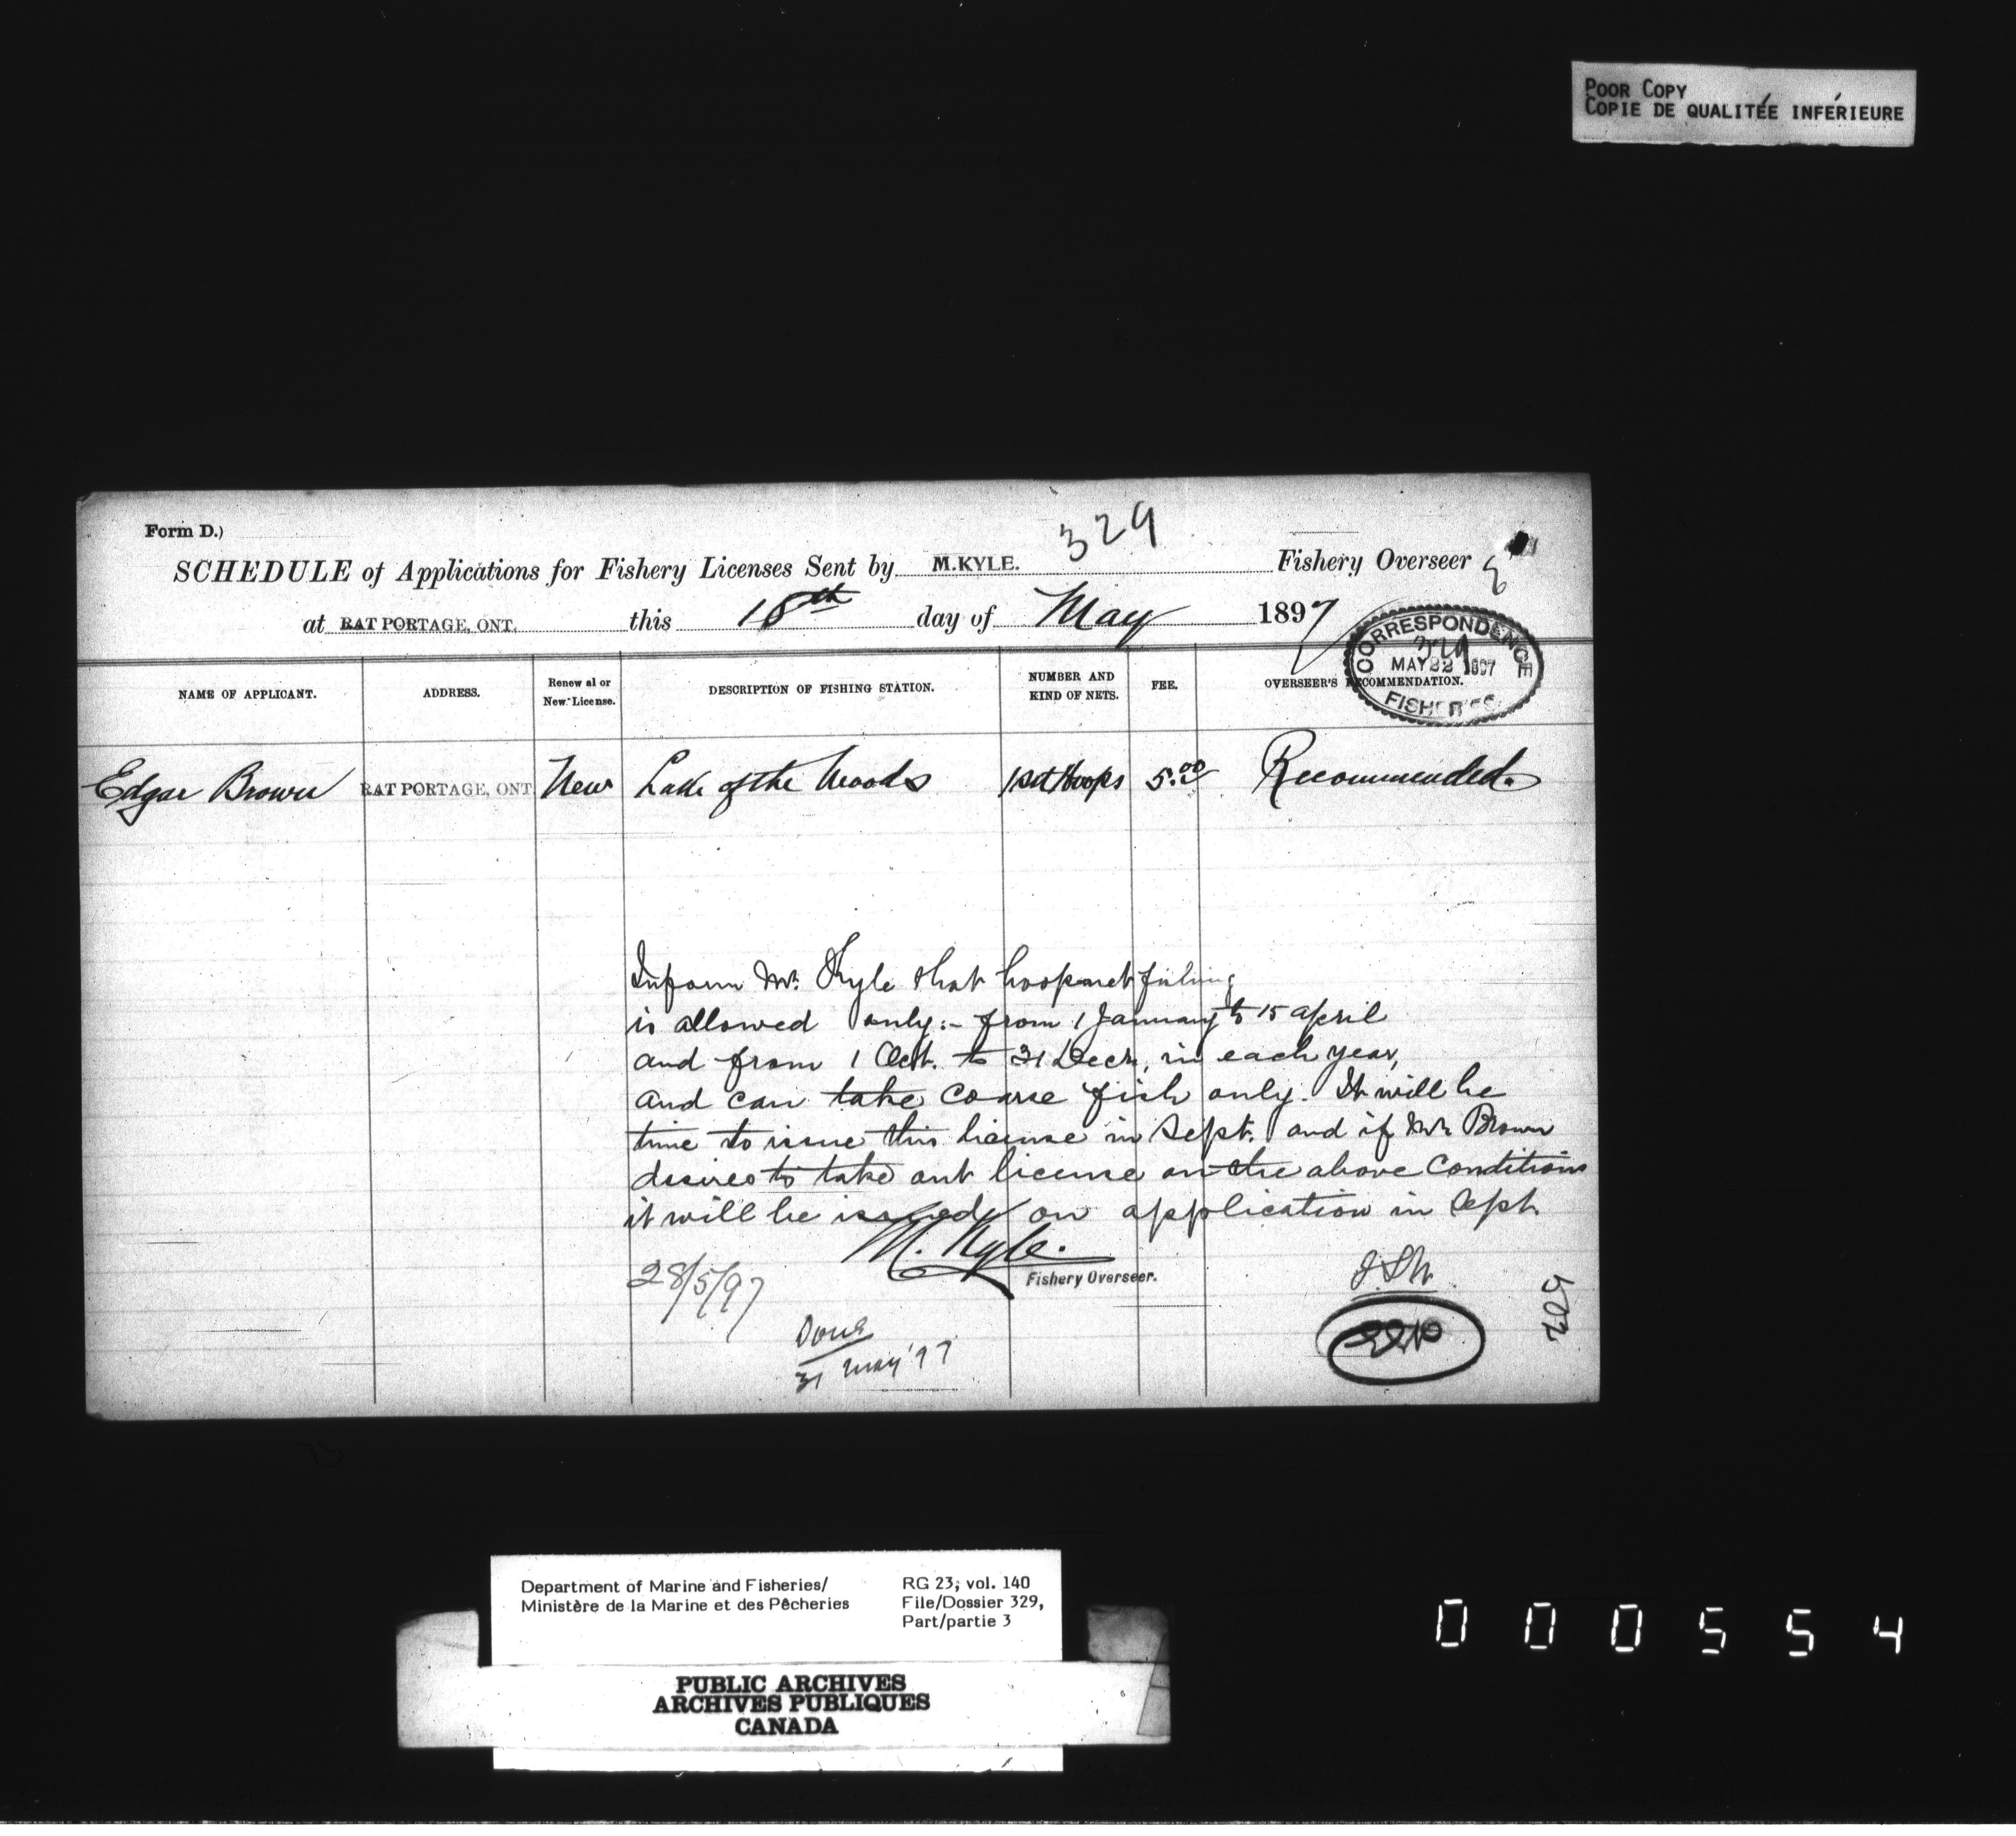 POOR COPY
COPIE DE QUALITÉE INFÉRIEURE
Form D.)
329
SCHEDULE of Applications for Fishery Licenses Sent by M.KYLE. Fishery Overseer
at RAT PORTAGE, ONT. this 18th day of May 1897
CORRESPONDENCE
329
MAY 22 1897
FISHERIES
NAME OF APPLICANT. ADDRESS. Renewal or New License. DESCRIPTION OF FISHING STATION. NUMBER AND KIND OF NETS. FEE. OVERSEER'S RECOMMENDATION.
Edgar Brown RAT PORTAGE, ONT New Lake of the Woods 1 set Hoops 5.00 Recommended.
Inform Mr. Kyle that hoopnet fishing
is allowed only:- from 1 January to 15 april
and from 1 Oct. to 31 Decr. in each year,
and can take coarse fish only. It will be
time to issue this license in Sept. and if Mr. Brown
desires to take out license on the above conditions
it will be issued on application in Sept.
M. Kyle.
Fishery Overseer.
28/5/97
Done
31 May '97
Department of Marine and Fisheries/
Ministère de la Marine et des Pêcheries
RG 23, vol. 140
File/Dossier 329,
Part/partie 3
PUBLIC ARCHIVES
ARCHIVES PUBLIQUES
CANADA
000554